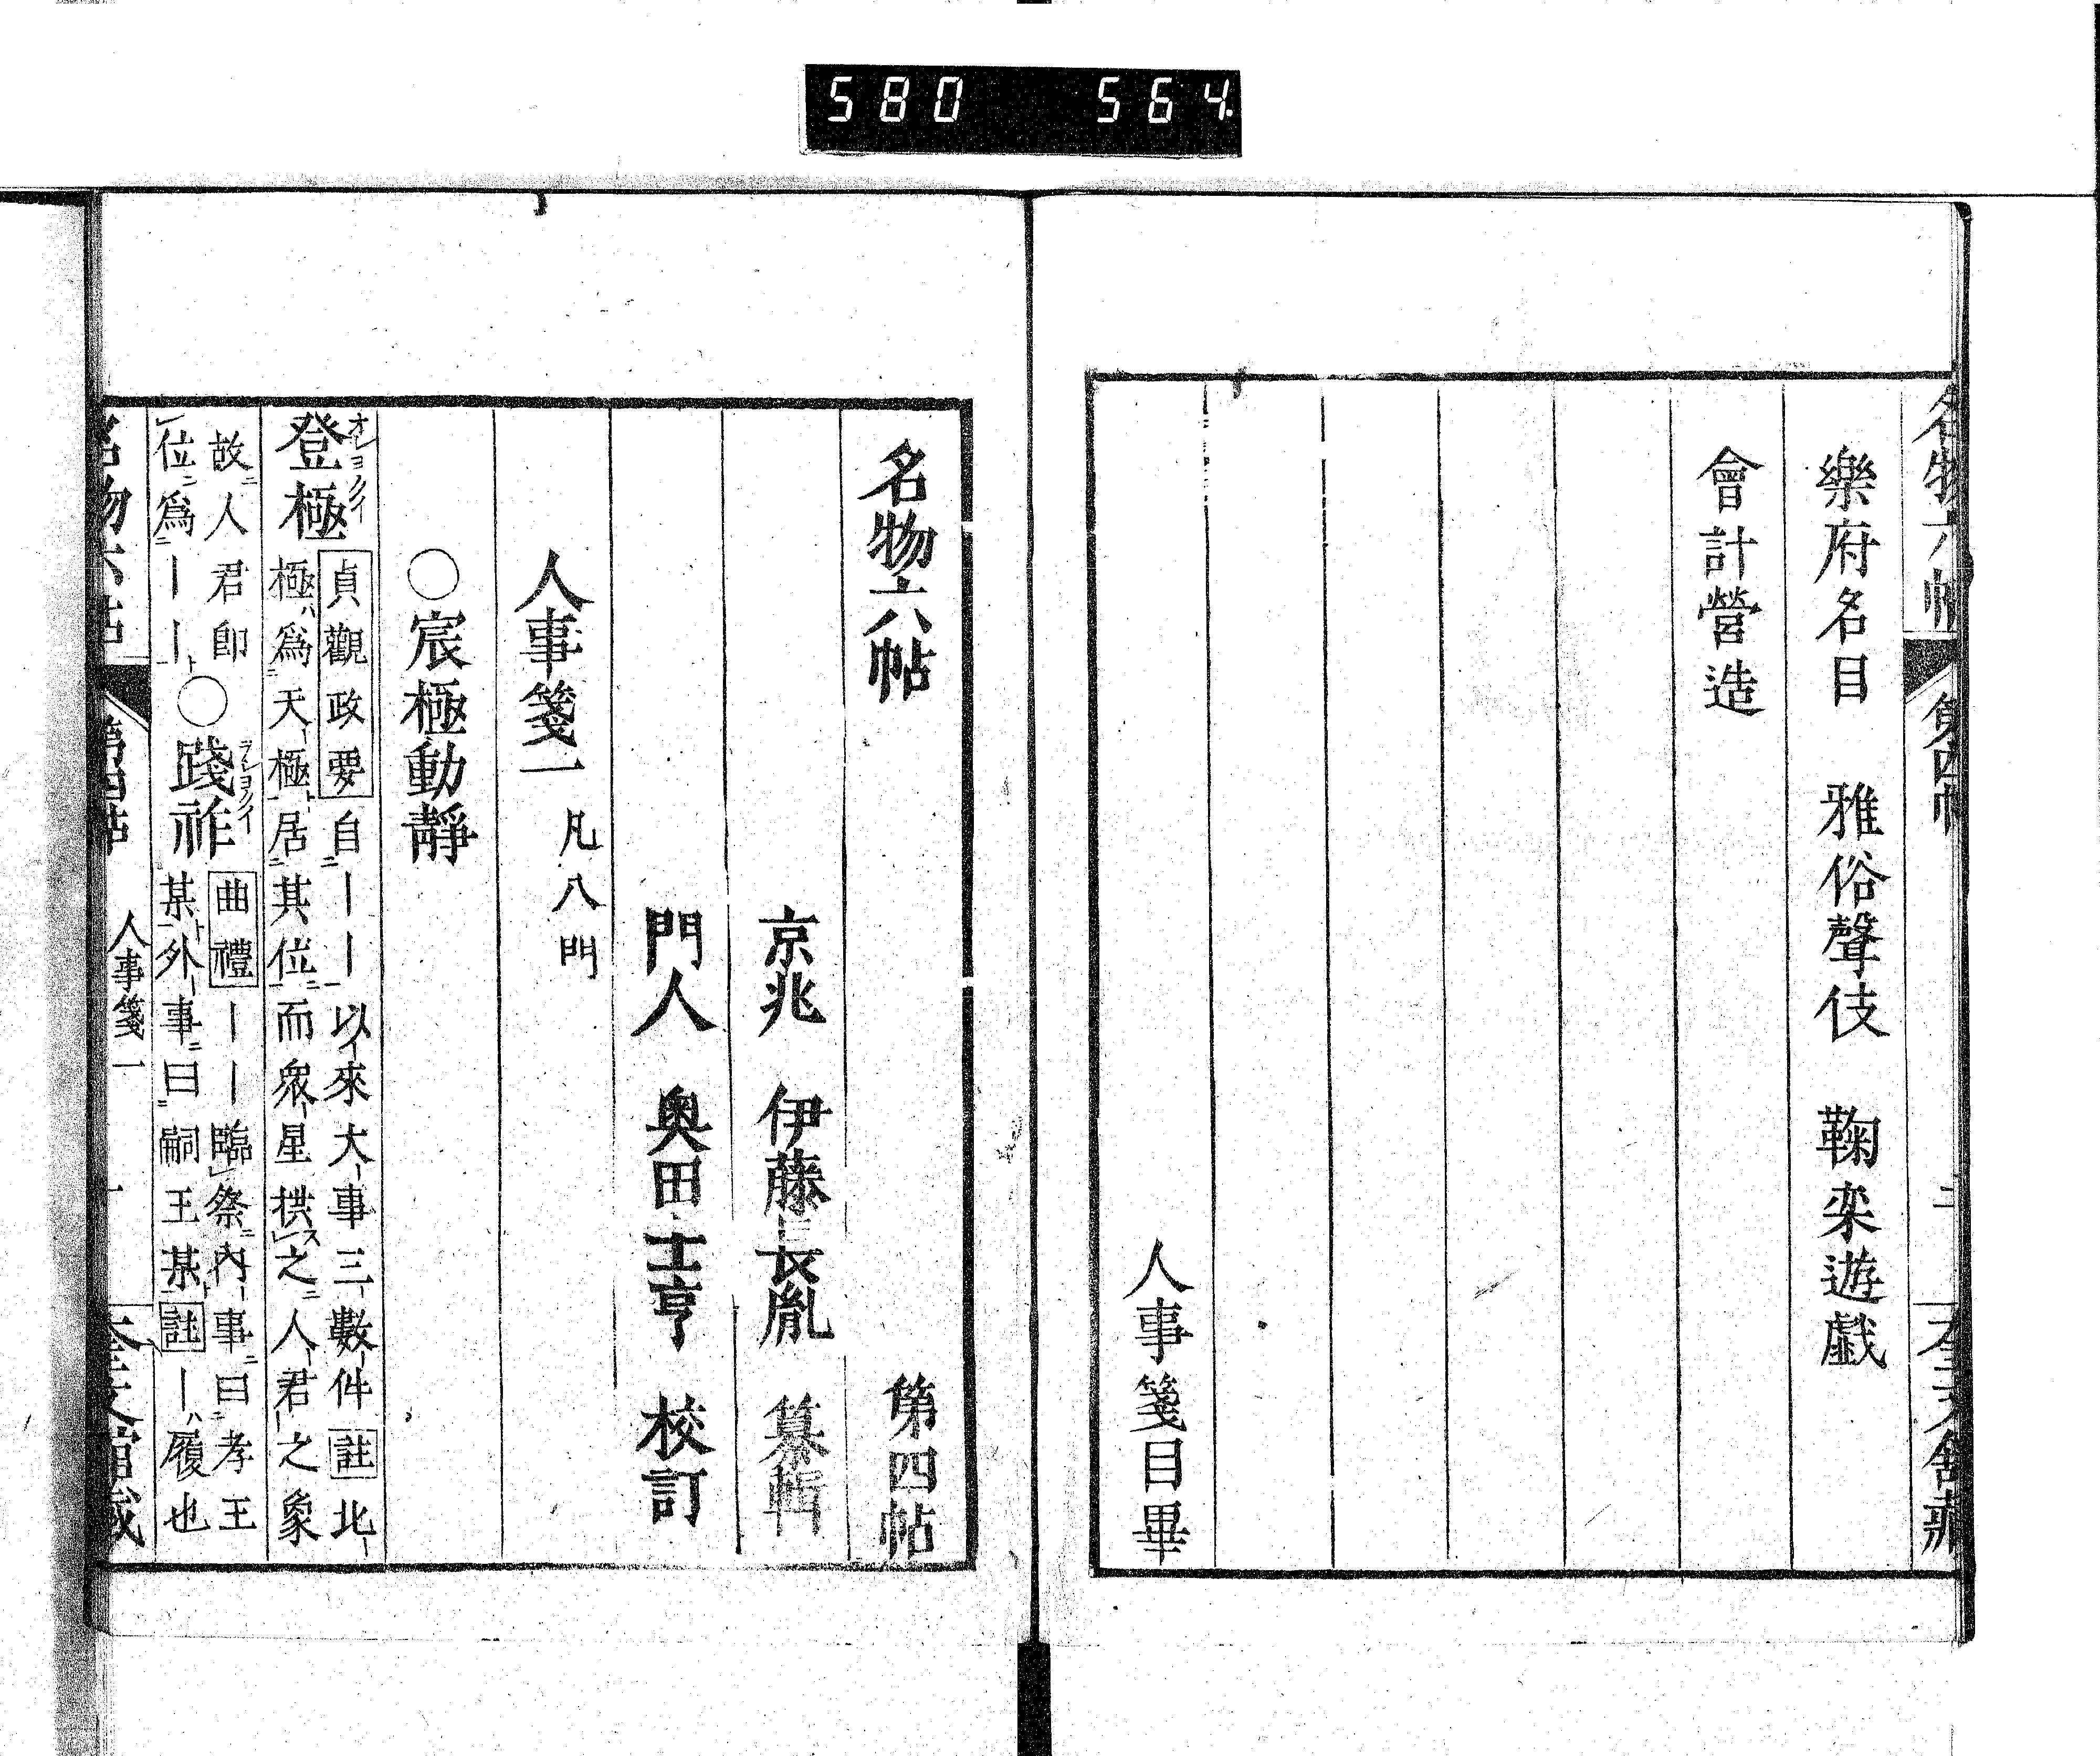 580 564.
名物六帖 第四帖 二 奎文舘藏
樂府名目 雅俗聲伎 鞠桒遊戯
會計營造
人事箋目畢
名物六帖 第四帖
京兆 伊藤長胤 纂輯
門人 奥田士亨 校訂
人事箋一 凡八門
○宸極動靜
登極 貞觀政要自丨丨以來大事三數件註北
極爲天極居其位而衆星拱之人君之象
故人君即
位爲丨丨○踐祚 曲禮丨丨臨祭內事曰孝王
某外事曰嗣王某註丨履也
名物六帖 第四帖 人事箋一 一 奎文舘藏